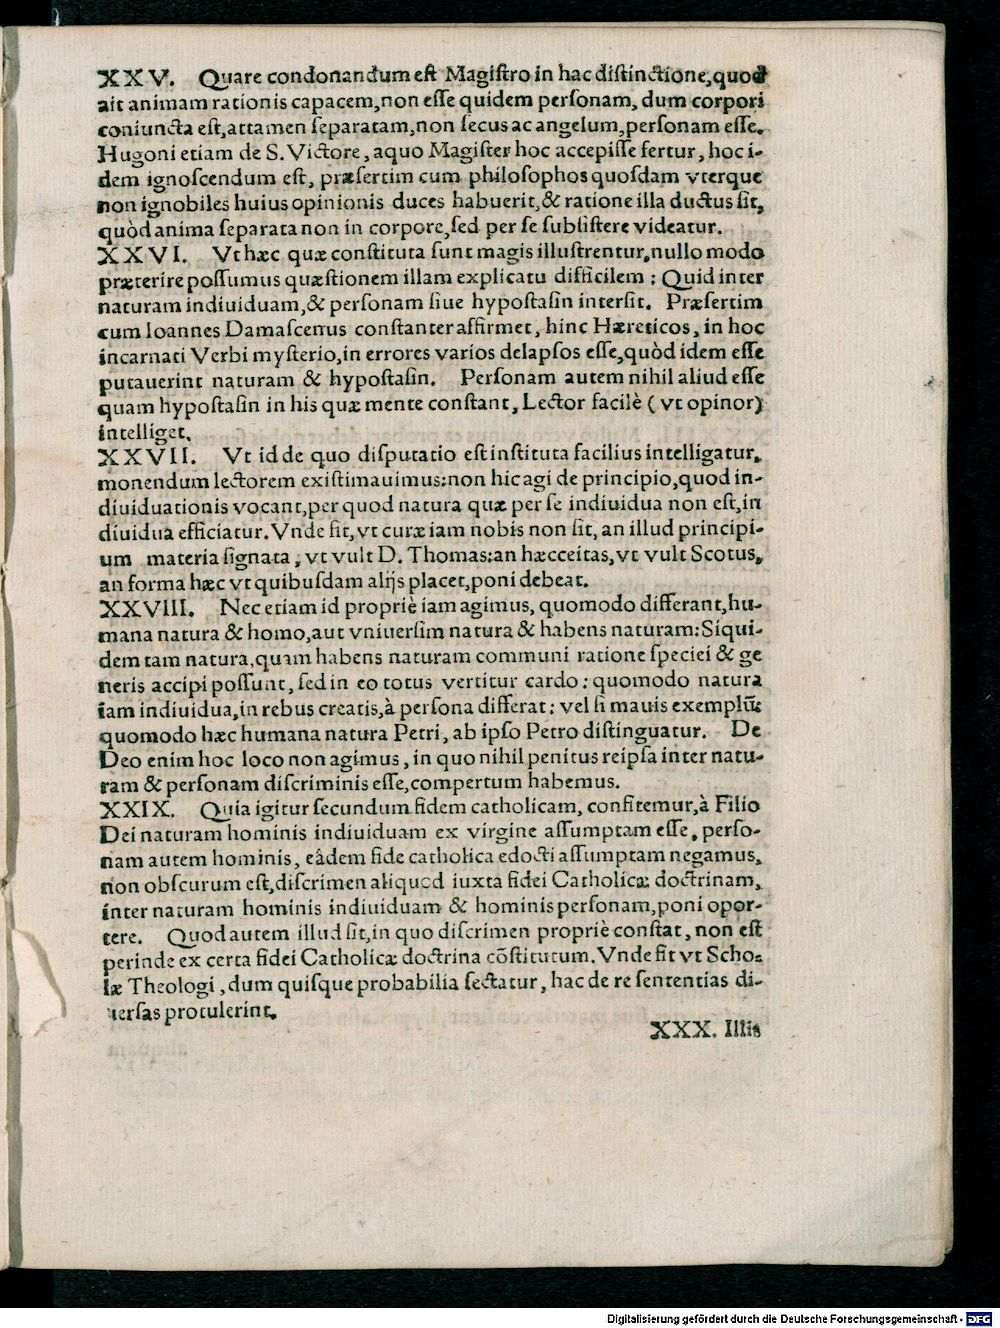 XXV. Quare condonandum est Magistro in hac distinctione, quod
ait animam rationis capacem, non esse quidem personam, dum corpori
coniuncta est, attamen separatam, non secus ac angelum, personam esse.
Hugoni etiam de S. Victore, aquo Magister hoc accepisse fertur, hoc i-
dem ignoscendum est, præsertim cum philosophos quosdam vterque
non ignobiles huius opinionis duces habuerit, & ratione illa ductus sit,
quòd anima separata non in corpore, sed per se subsistere videatur.
XXVI. Vt hæc quæ constituta sunt magis illustrentur, nullo modo
præterire possumus quæstionem illam explicatu difficilem; Quid inter
naturam indiuiduam, & personam siue hypostasin intersit. Præsertim
cum Ioannes Damascenus constanter affirmet, hinc Hæreticos, in hoc
incarnati Verbi mysterio, in errores varios delapsos esse, quòd idem esse
putauerint naturam & hypostasin. Personam autem nihil aliud esse
quam hypostasin in his quæ mente constant, Lector facilè (vt opinor)
intelliget.
XXVII. Vt id de quo disputatio est instituta facilius intelligatur,
monendum lectorem existimauimus: non hic agi de principio, quod in-
diuiduationis vocant, per quod natura quæ per se indiuidua non est, in
diuidua efficiatur. Vnde fit, vt curæ iam nobis non sit, an illud principi-
um materia signata, vt vult D. Thomas: an hæcceitas, vt vult Scotus,
an forma hæc vt quibusdam alijs placet, poni debeat.
XXVIII. Nec etiam id propriè iam agimus, quomodo differant, hu-
mana natura & homo, aut vniuersim natura & habens naturam: Siqui-
dem tam natura, quam habens naturam communi ratione speciei & ge
neris accipi possunt, sed in eo totus vertitur cardo: quomodo natura
iam indiuidua, in rebus creatis, à persona differat: vel si mauis exemplũ:
quomodo hæc humana natura Petri, ab ipso Petro distinguatur. De
Deo enim hoc loco non agimus, in quo nihil penitus reipsa inter natu-
ram & personam discriminis esse, compertum habemus.
XXIX. Quia igitur secundum fidem catholicam, confitemur, à Filio
Dei naturam hominis indiuiduam ex virgine assumptam esse, perso-
nam autem hominis, eâdem fide catholica edocti assumptam negamus,
non obscurum est, discrimen aliquod iuxta fidei Catholicæ doctrinam,
inter naturam hominis indiuiduam & hominis personam, poni opor-
tere. Quod autem illud sit, in quo discrimen propriè constat, non est
perinde ex certa fidei Catholicæ doctrina cõstitutum. Vnde fit vt Scho-
læ Theologi, dum quisque probabilia sectatur, hac de re sententias di-
uersas protulerint.
XXX. Illis
Digitalisierung gefördert durch die Deutsche Forschungsgemeinschaft - DFG